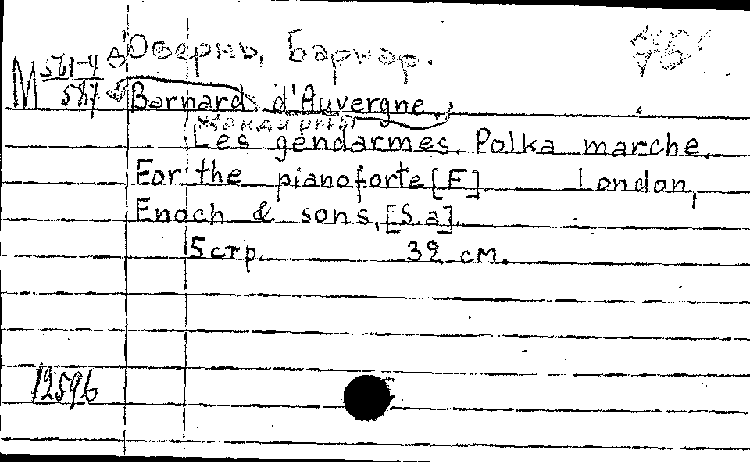 Оверньи, Барнар.
M 561-4
587
Barnard d'Auvergne.
Жандармы
Les gendarmes. Polka marche.
For the pianoforte [F] London,
Enoch & sons, [S.a].
5 стр. 32 см.
12596